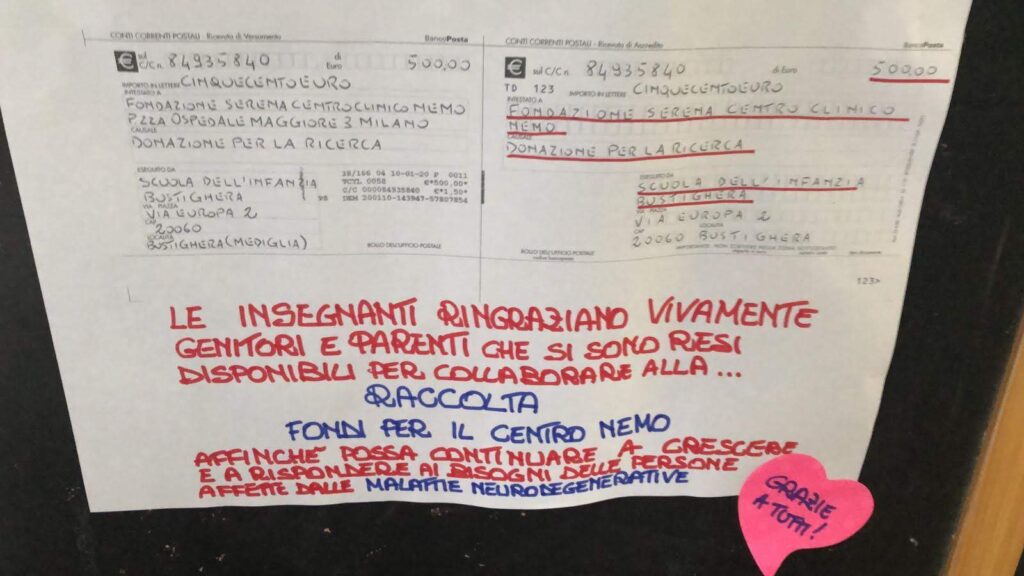 CONTI CORRENTI POSTALI - Ricevuta di Versamento BancoPosta
€ sul C/C n. 84935840 di Euro 500,00
IMPORTO IN LETTERE CINQUECENTOEURO
INTESTATO A
FONDAZIONE SERENA CENTRO CLINICO NEMO
PZZA OSPEDALE MAGGIORE 3 MILANO
CAUSALE
DONAZIONE PER LA RICERCA
ESEGUITO DA
SCUOLA DELL'INFANZIA
BUSTIGHERA
VIA PIAZZA
VIA EUROPA 2
CAP
20060
LOCALITÀ
BUSTIGHERA (MEDIGLIA)
18/166 04 10-01-20 P 0011
TCYL 0058 €*500,00*
C/C 000084935840 €*1,50*
BOLLO DELL'UFFICIO POSTALE
CONTI CORRENTI POSTALI - Ricevuta di Accredito BancoPosta
€ sul C/C n. 84935840 di Euro 500,00
TD 123 IMPORTO IN LETTERE CINQUECENTOEURO
INTESTATO A
FONDAZIONE SERENA CENTRO CLINICO
NEMO
CAUSALE
DONAZIONE PER LA RICERCA
ESEGUITO DA
SCUOLA DELL'INFANZIA
BUSTIGHERA
VIA PIAZZA
VIA EUROPA 2
CAP LOCALITÀ
20060 BUSTIGHERA
BOLLO DELL'UFFICIO POSTALE
123>
LE INSEGNANTI RINGRAZIANO VIVAMENTE
GENITORI E PARENTI CHE SI SONO RESI
DISPONIBILI PER COLLABORARE ALLA ...
RACCOLTA
FONDI PER IL CENTRO NEMO
AFFINCHÈ POSSA CONTINUARE A CRESCERE
E A RISPONDERE AI BISOGNI DELLE PERSONE
AFFETTE DALLE MALATTIE NEURODEGENERATIVE
GRAZIE
A TUTTI!